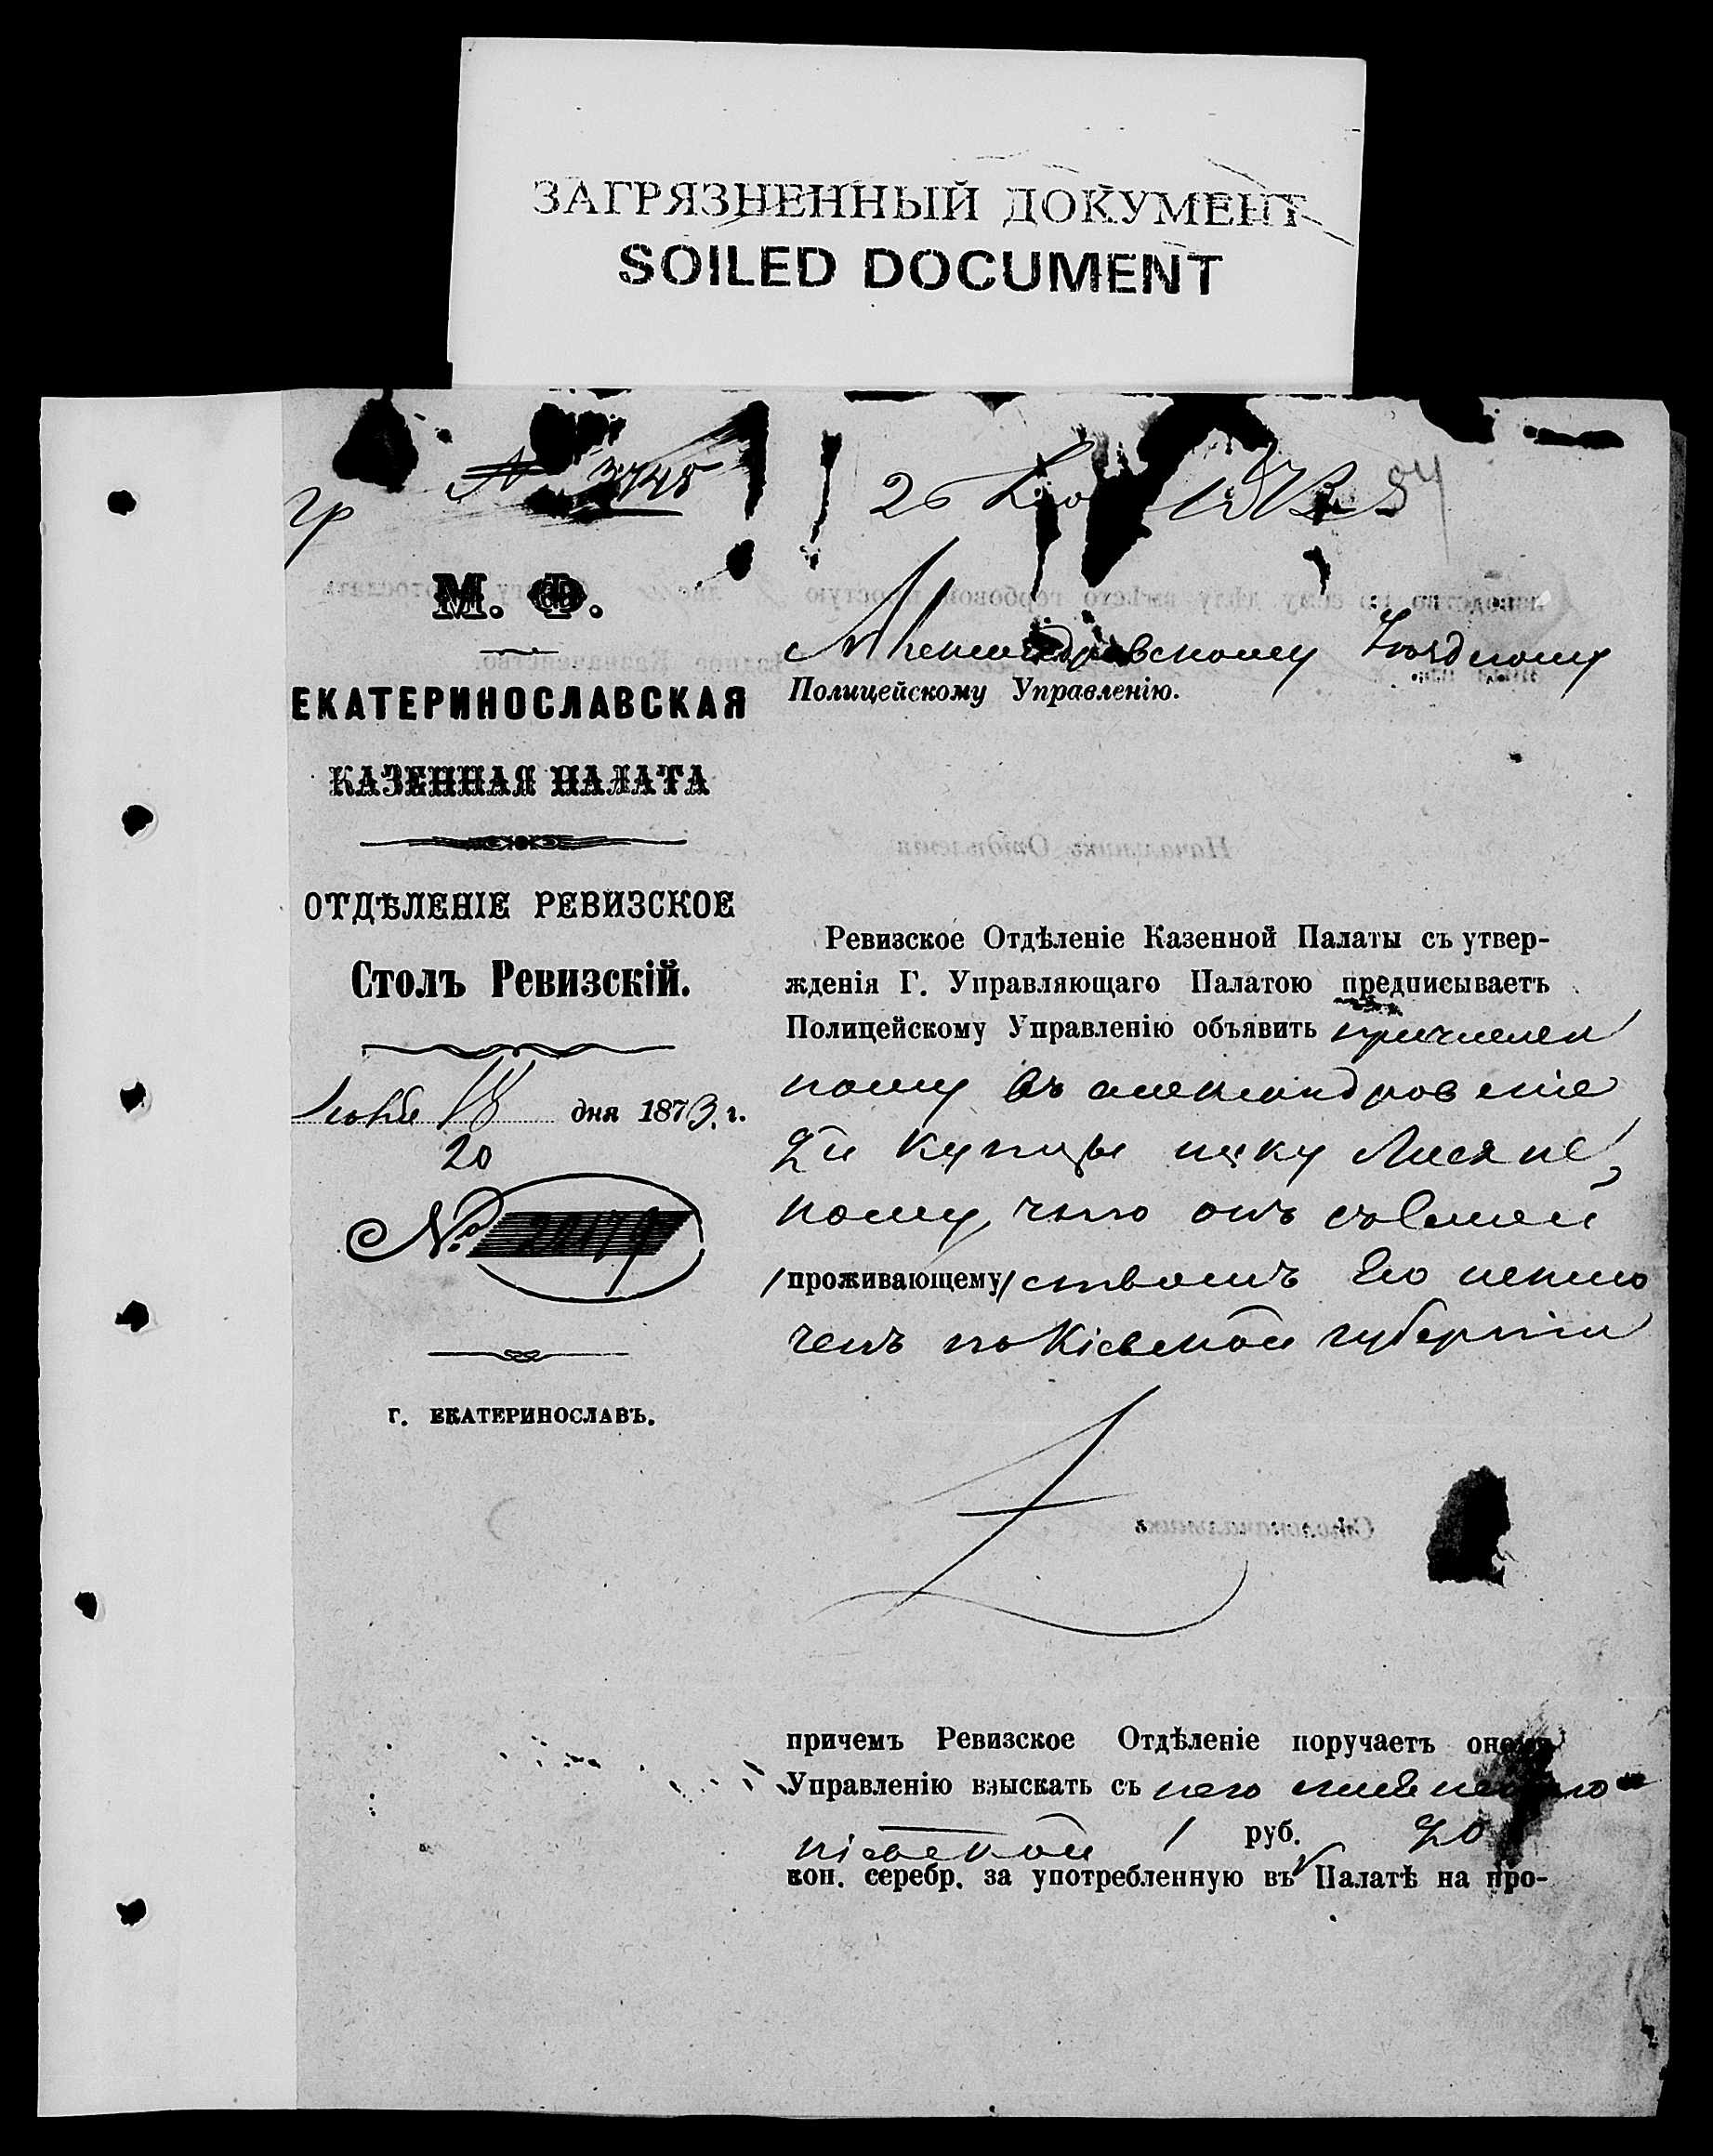 ЗАГРЯЗНЕННЫЙ ДОКУМЕНТ
SOILED DOCUMENT
№ 3748
26 1873 84
М. Ф.
ЕКАТЕРИНОСЛАВСКАЯ
КАЗЕННАЯ ПАЛАТА
ОТДѢЛЕНІЕ РЕВИЗСКОЕ
Столъ Ревизскій.
18 дня 1873 г.
20
№
Г. ЕКАТЕРИНОСЛАВЪ.
Александровскому Уѣздному
Полицейскому Управленію.
Ревизское Отдѣленіе Казенной Палаты съ утвер-
жденія Г. Управляющаго Палатою предписываетъ
Полицейскому Управленію объявить причислен
ному въ александровскіе
2й купцы Лисян
скому, что онъ съ семей
/проживающему/ ствомъ Его исклю
ченъ по Кіевской губерніи
причемъ Ревизское Отдѣленіе поручаетъ оному
Управленію взыскать съ него
руб.
коп. серебр. за употребленную въ Палатѣ на про-